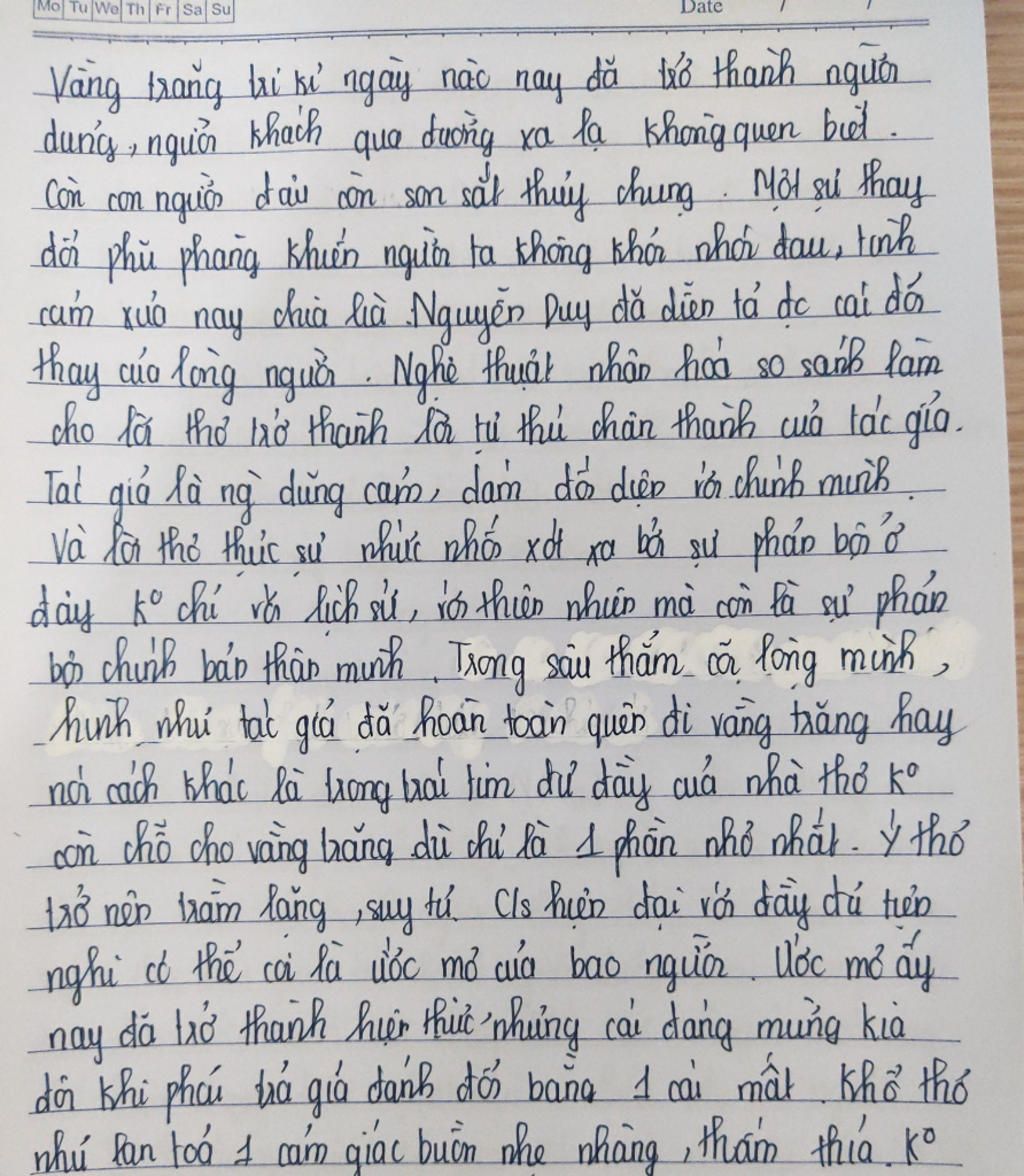 Mo Tu We Th Fr Sa Su Date / /
Vầng trăng tri kỉ ngày nào nay đã trở thành người
dưng, người khách qua đường xa lạ không quen biết.
Còn con người đâu còn son sắt thủy chung. Một sự thay
đổi phũ phàng khiến người ta không khỏi nhói đau, tình
cảm xưa nay chia lìa. Nguyễn Duy đã diễn tả đc cái đổi
thay của lòng người. Nghệ thuật nhân hoá so sánh làm
cho lời thơ trở thành lời tự thú chân thành của tác giả.
Tác giả là ng dũng cảm, dám đối diện với chính mình.
Và lời thơ thực sự nhức nhối xót xa bởi sự phản bội ở
đây k° chỉ với lịch sử, với thiên nhiên mà còn là sự phản
bội chính bản thân mình. Trong sâu thẳm cõi lòng mình,
hình như tác giả đã hoàn toàn quên đi vầng trăng hay
nói cách khác là trong trái tim dư đầy của nhà thơ k°
còn chỗ cho vầng trăng dù chỉ là 1 phần nhỏ nhất. Ý thơ
trở nên trầm lắng, suy tư. C/s hiện đại với đầy đủ tiện
nghi có thể coi là ước mơ của bao người. Ước mơ ấy
nay đã trở thành hiện thực, nhưng cái đáng mừng kia
đôi khi phải trả giá đánh đổi bằng 1 cái mất. Khổ thơ
như lan toả 1 cảm giác buồn nhẹ nhàng, thấm thía. K°